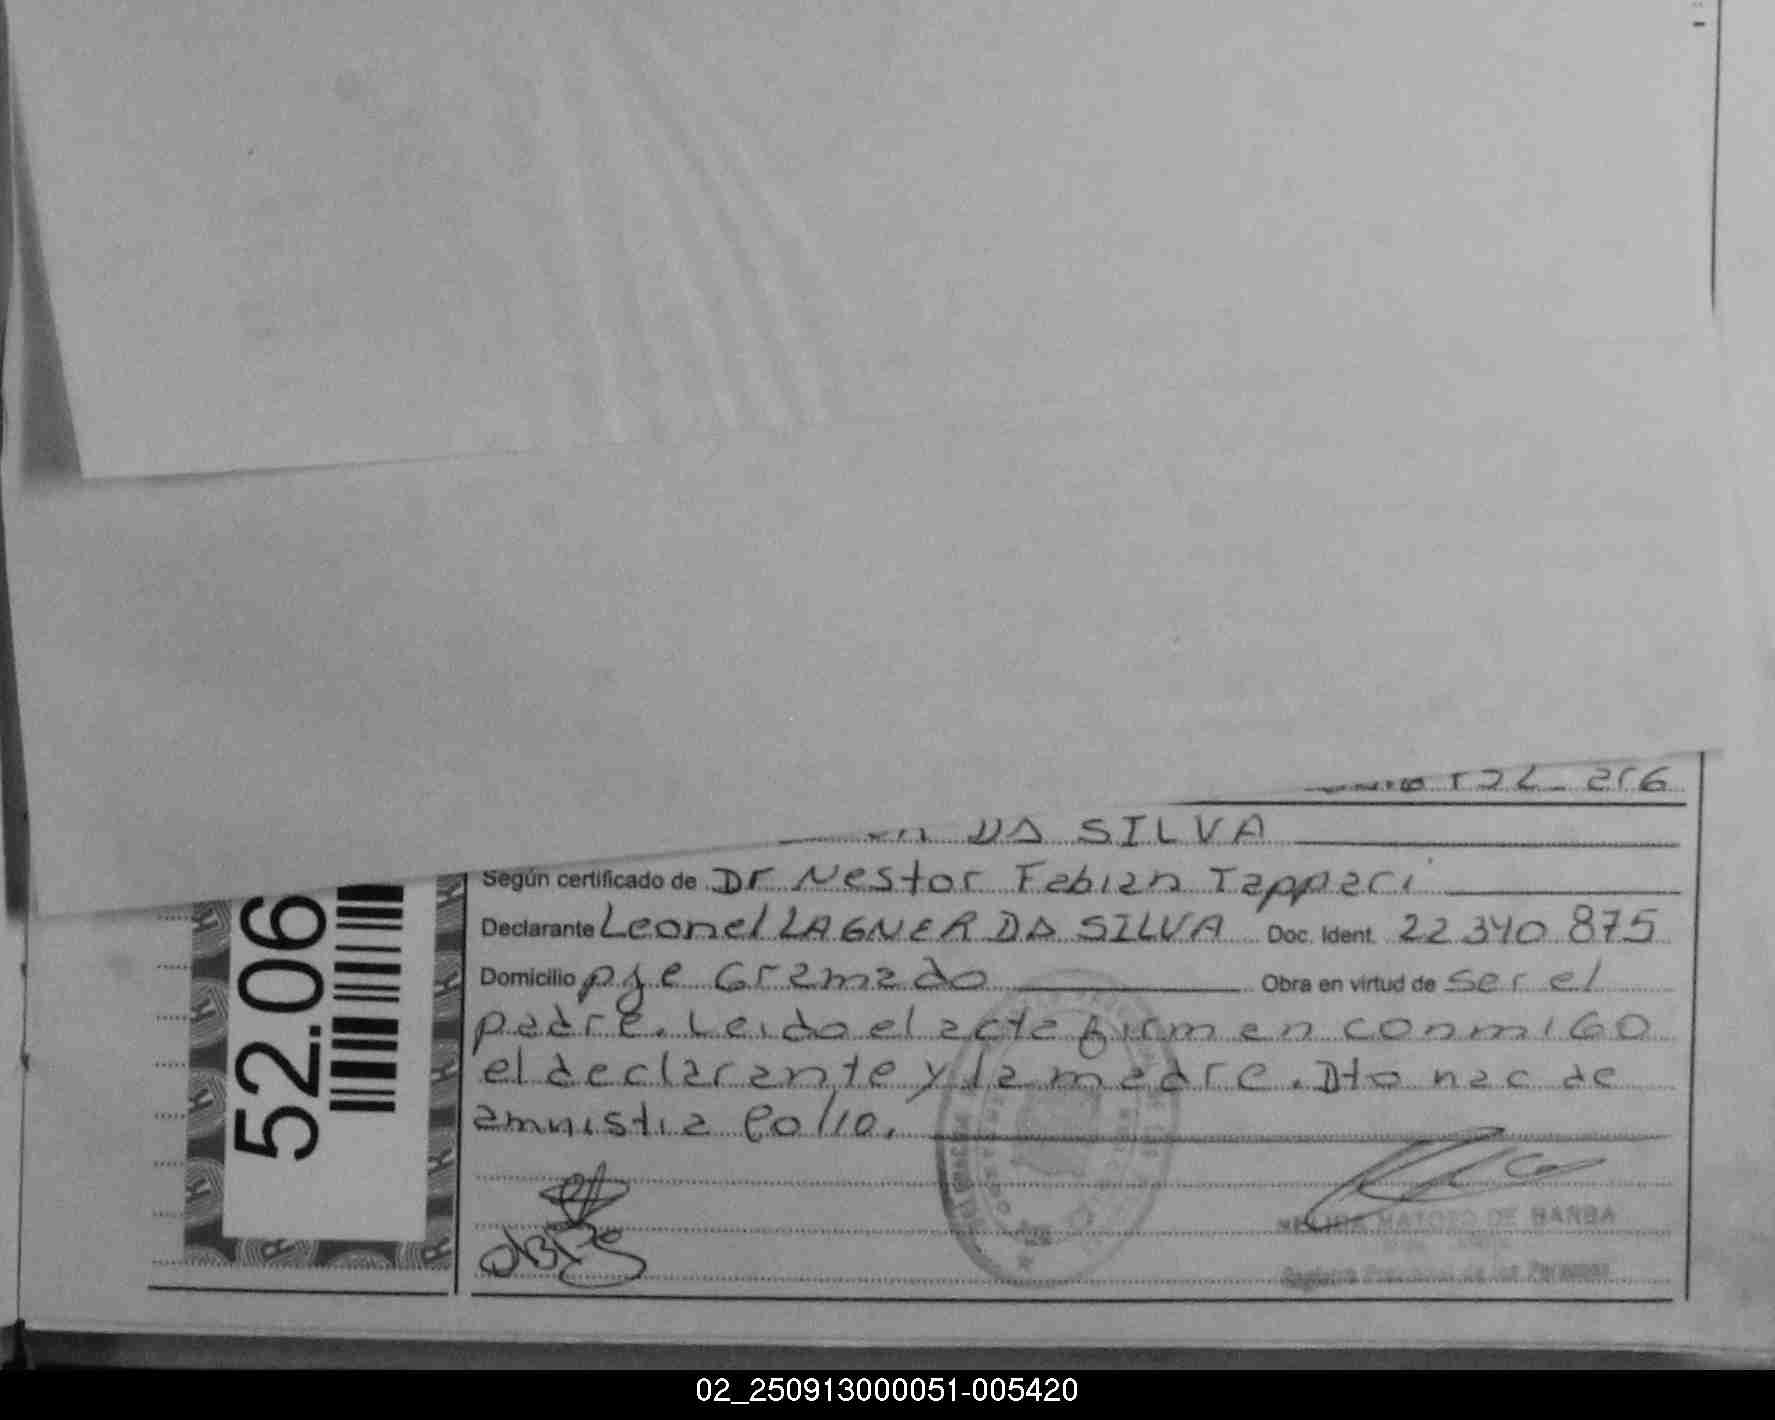 DA SILVA
Según certificado de Dr Nestor Fabian Tappari
Declarante Leonel LAGNER DA SILVA Doc. Ident. 22 340 875
Domicilio pje Gramado Obra en virtud de ser el
padre. Leido el acta firman conmigo
el declarante y la madre. Dto nac de
amnistia
52.06
MATOZO DE BARBA
Registro Provincial de las Personas
02_250913000051-005420